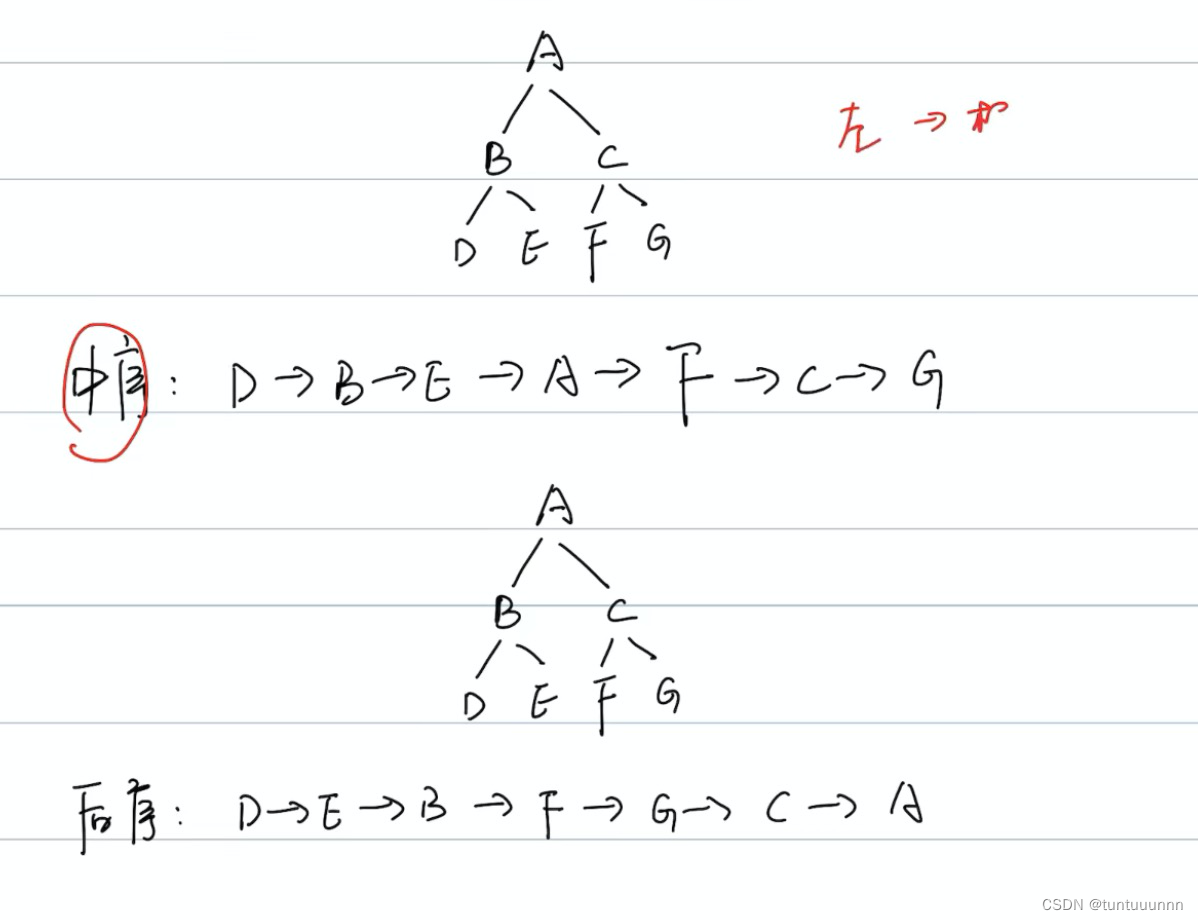 A
左 →
B C
D E F G
中序: D → B → E → A → F → C → G
A
B C
D E F G
后序: D → E → B → F → G → C → A
CSDN @tuntuuunnn